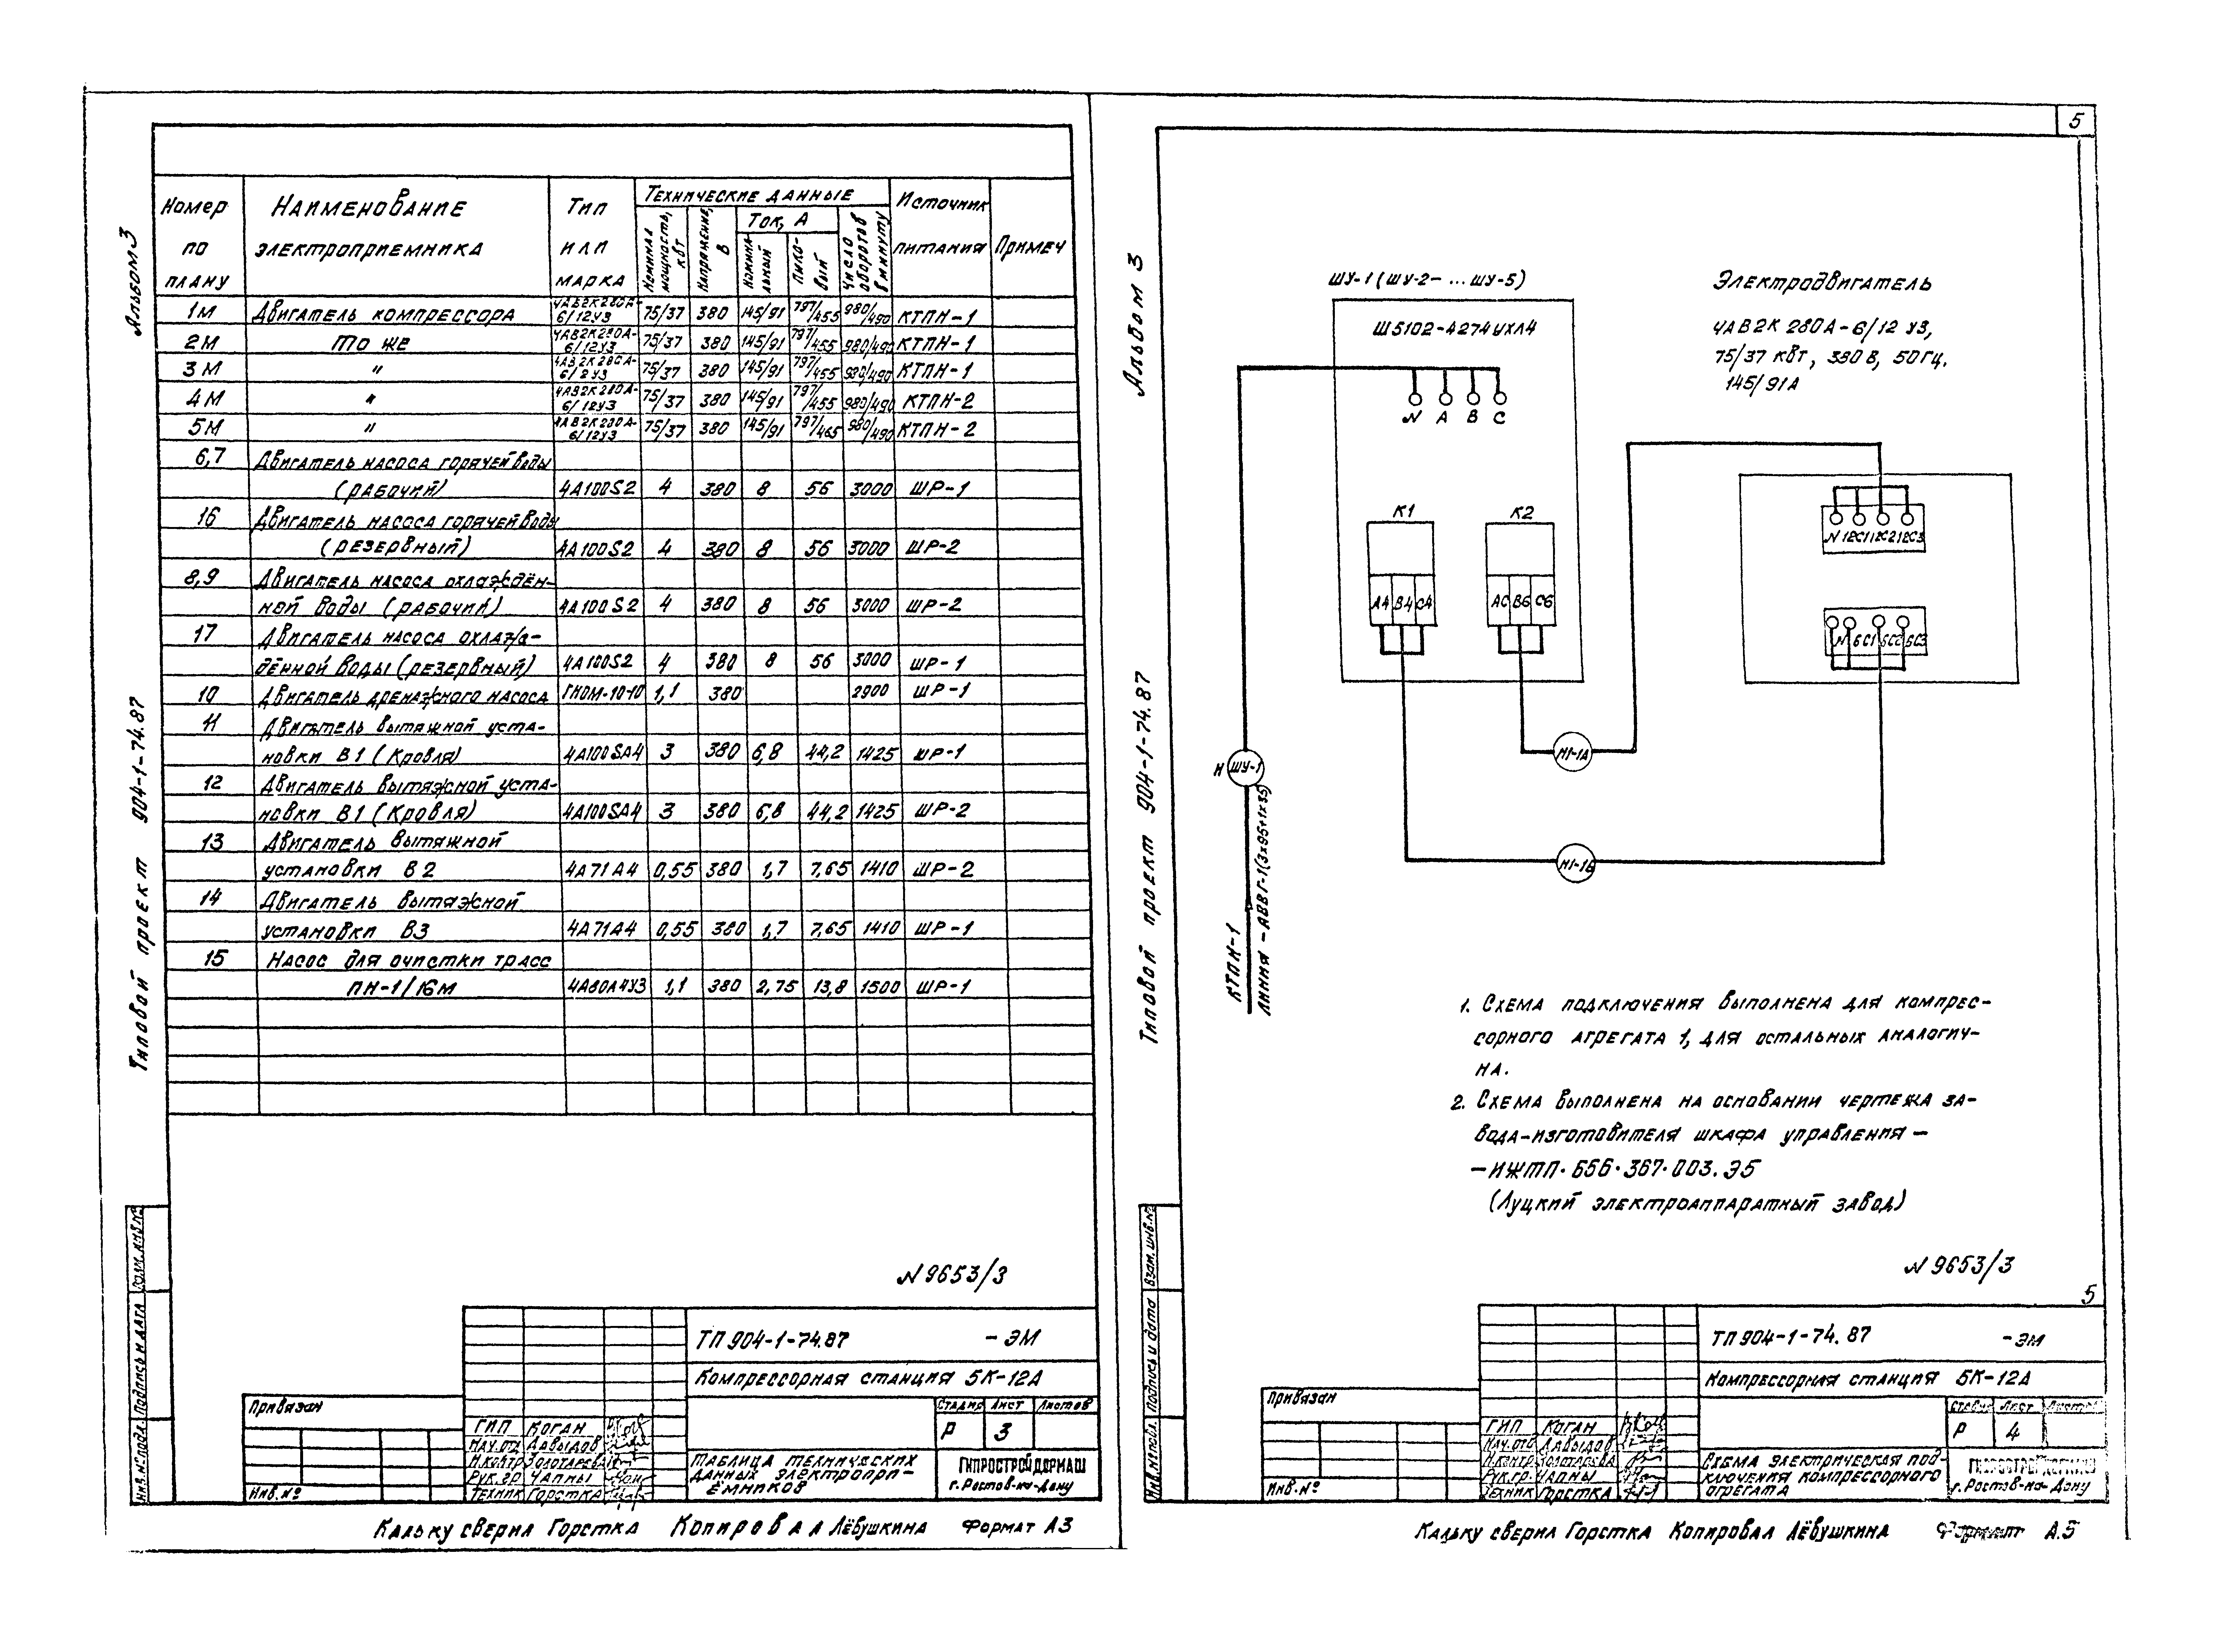 Альбом 3
Типовой проект 904-1-74.87
Номер по плану
Наименование электроприемника
Тип или марка
Технические данные
Номинал мощность, кВт
Напряжение, В
Ток, А
Номинальный
Пиковый
Число оборотов в минуту
Источник питания
Примеч
1М Двигатель компрессора 4АВ2К280А-6/12У3 75/37 380 145/91 797/455 980/490 КТПН-1
2М То же 4АВ2К280А-6/12У3 75/37 380 145/91 797/455 980/490 КТПН-1
3М " 4АВ2К280А-6/12У3 75/37 380 145/91 797/455 980/490 КТПН-1
4М " 4АВ2К280А-6/12У3 75/37 380 145/91 797/455 980/490 КТПН-2
5М " 4АВ2К280А-6/12У3 75/37 380 145/91 797/465 980/490 КТПН-2
6,7 Двигатель насоса горячей воды
(рабочий) 4А100S2 4 380 8 56 3000 ШР-1
16 Двигатель насоса горячей воды
(резервный) 4А100S2 4 380 8 56 3000 ШР-2
8,9 Двигатель насоса охлаждён-
ной воды (рабочий) 4А100S2 4 380 8 56 3000 ШР-2
17 Двигатель насоса охлаж-
дённой воды (резервный) 4А100S2 4 380 8 56 3000 ШР-1
10 Двигатель дренажного насоса ГНОМ-10-10 1,1 380 2900 ШР-1
11 Двигатель вытяжной уста-
новки В1 (Кровля) 4А100SА4 3 380 6,8 44,2 1425 ШР-1
12 Двигатель вытяжной уста-
новки В1 (Кровля) 4А100SА4 3 380 6,8 44,2 1425 ШР-2
13 Двигатель вытяжной
установки В2 4А71А4 0,55 380 1,7 7,65 1410 ШР-2
14 Двигатель вытяжной
установки В3 4А71А4 0,55 380 1,7 7,65 1410 ШР-1
15 Насос для очистки трасс
ПН-1/16М 4А80А4У3 1,1 380 2,75 13,8 1500 ШР-1
N 9653/3
ТП 904-1-74.87 -ЭМ
Компрессорная станция 5К-12А
Привязан
Инв.№
ГИП Коган
Нач.отд Давыдов
Н.контр Золотарева
Рук.гр Чапны
Техник Горстка
Стадия Лист Листов
Р 3
Таблица технических
данных электропри-
ёмников
ГИПРОСТРОЙДОРМАШ
г.Ростов-на-Дону
Инв.№подл. Подпись и дата Взам.инв.№
Кальку сверил Горстка Копировал Лёвушкина Формат А3
5
Альбом 3
Типовой проект 904-1-74.87
ШУ-1 (ШУ-2- ... ШУ-5)
Ш5102-4274УХЛ4
N А В С
К1 К2
А4 В4 С4
А6 В6 С6
Электродвигатель
4АВ2К 280А-6/12 У3,
75/37 кВт, 380 В, 50 Гц.
145/91А
N 12С1 12С2 12С3
N 6С1 6С2 6С3
Н ШУ-1
М1-1А
М1-1Б
КТПН-1
Линия - АВВГ-1(3х95+1х35)
1. Схема подключения выполнена для компрес-
сорного агрегата 1, для остальных аналогич-
на.
2. Схема выполнена на основании чертежа за-
вода-изготовителя шкафа управления -
-ИЖТП.656.367.003.Э5
(Луцкий электроаппаратный завод)
N 9653/3
5
ТП 904-1-74.87 -ЭМ
Компрессорная станция 5К-12А
Привязан
Инв.№
ГИП Коган
Нач.отд Давыдов
Н.контр Золотарева
Рук.гр. Чапны
Техник Горстка
Стадия Лист Листов
Р 4
Схема электрическая под-
ключения компрессорного
агрегата
ГИПРОСТРОЙДОРМАШ
г.Ростов-на-Дону
Инв.№подл. Подпись и дата Взам.инв.№
Кальку сверил Горстка Копировал Лёвушкина Формат А.5